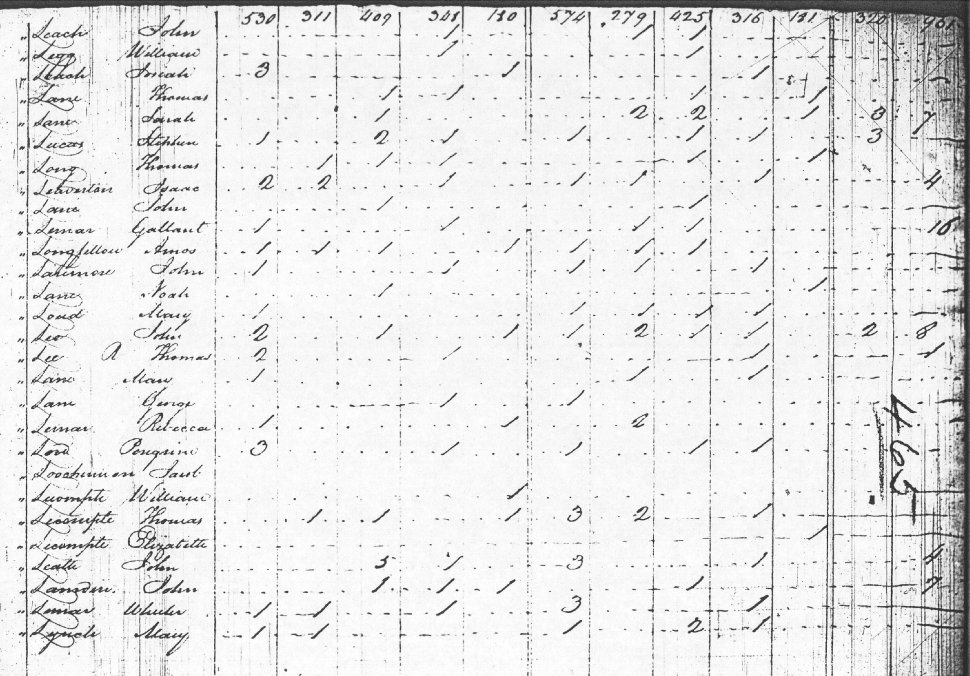 530 311 409 348 180 574 279 425 316 131 320
" Leach John 1 1 1
" Legg William 1 1
" Leach Josiah 3 1 1
" Lane Thomas 1 1 1 1
" Lane Sarah 1 2 2 1 3 7
" Lucas Stephen 1 2 1 1 1 1 3
" Long Thomas 1 1 1 1 1
" Leaverton Isaac 2 2 1 1 1 1 4
" Lane John 1 1
" Lemar Gallant 1 1 1 1 16
" Longfellow Amos 1 1 1 1 1 1 1
" Latimore John 1 1 1 1 1
" Lane Noah 1 1
" Loud Mary 1 1 1 1 1
" Leo John 2 1 1 1 2 1 1 2 8
" Lee R Thomas 2 1 1 1
" Lane Mary 1 1 1
" Lane George 1 1
" Lemar Rebecca 1 1 2
" Lord Peregrine 3 1 1 1 1
"
" Lecompte William 1
" Lecompte Thomas 1 1 1 3 2 1
" Lecompte Elizabeth 1
" John 5 1 3 1 4
" Lamden John 1 1 1 1
" Lemar Wheeler 1 1 1 3 1
" Lynch Mary 1 1 1 2 1
465